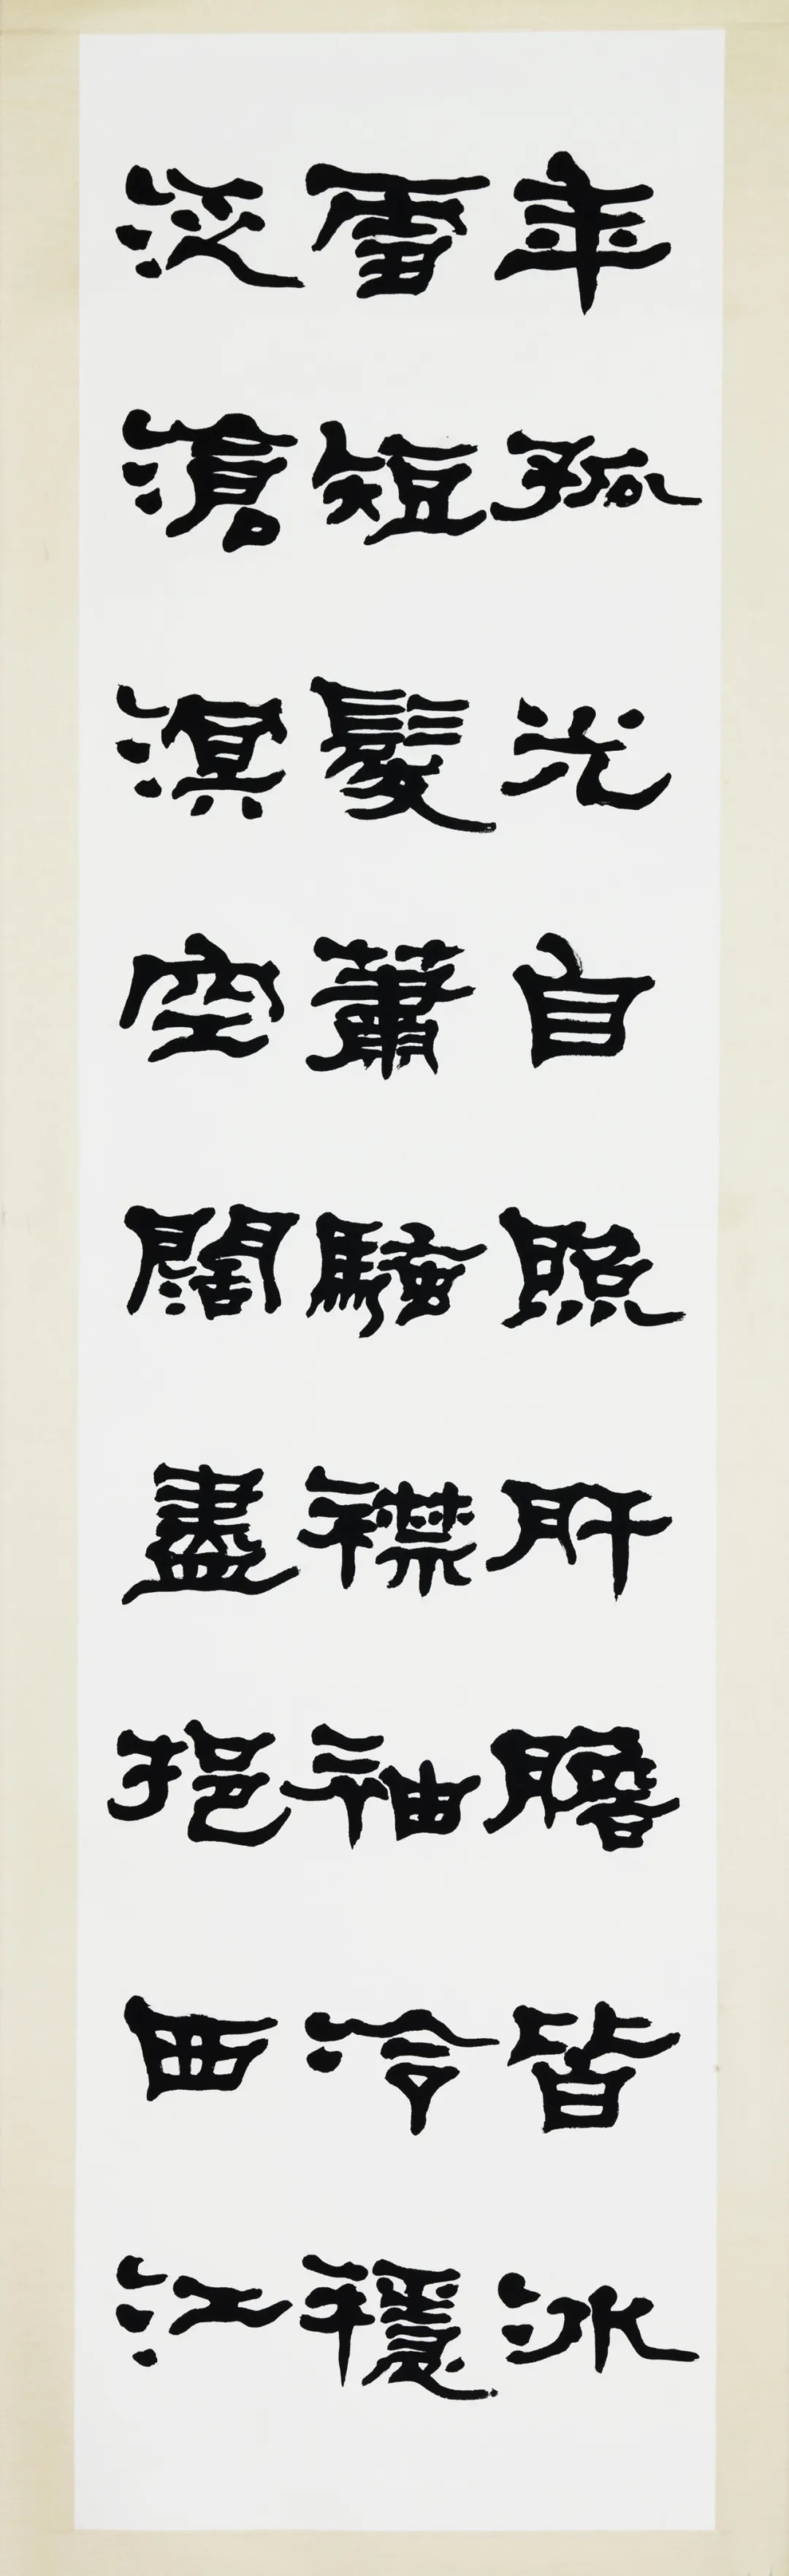 年孤光自照肝膽皆冰
雪短髮蕭騷襟袖冷穩
泛滄溟空闊盡挹西江